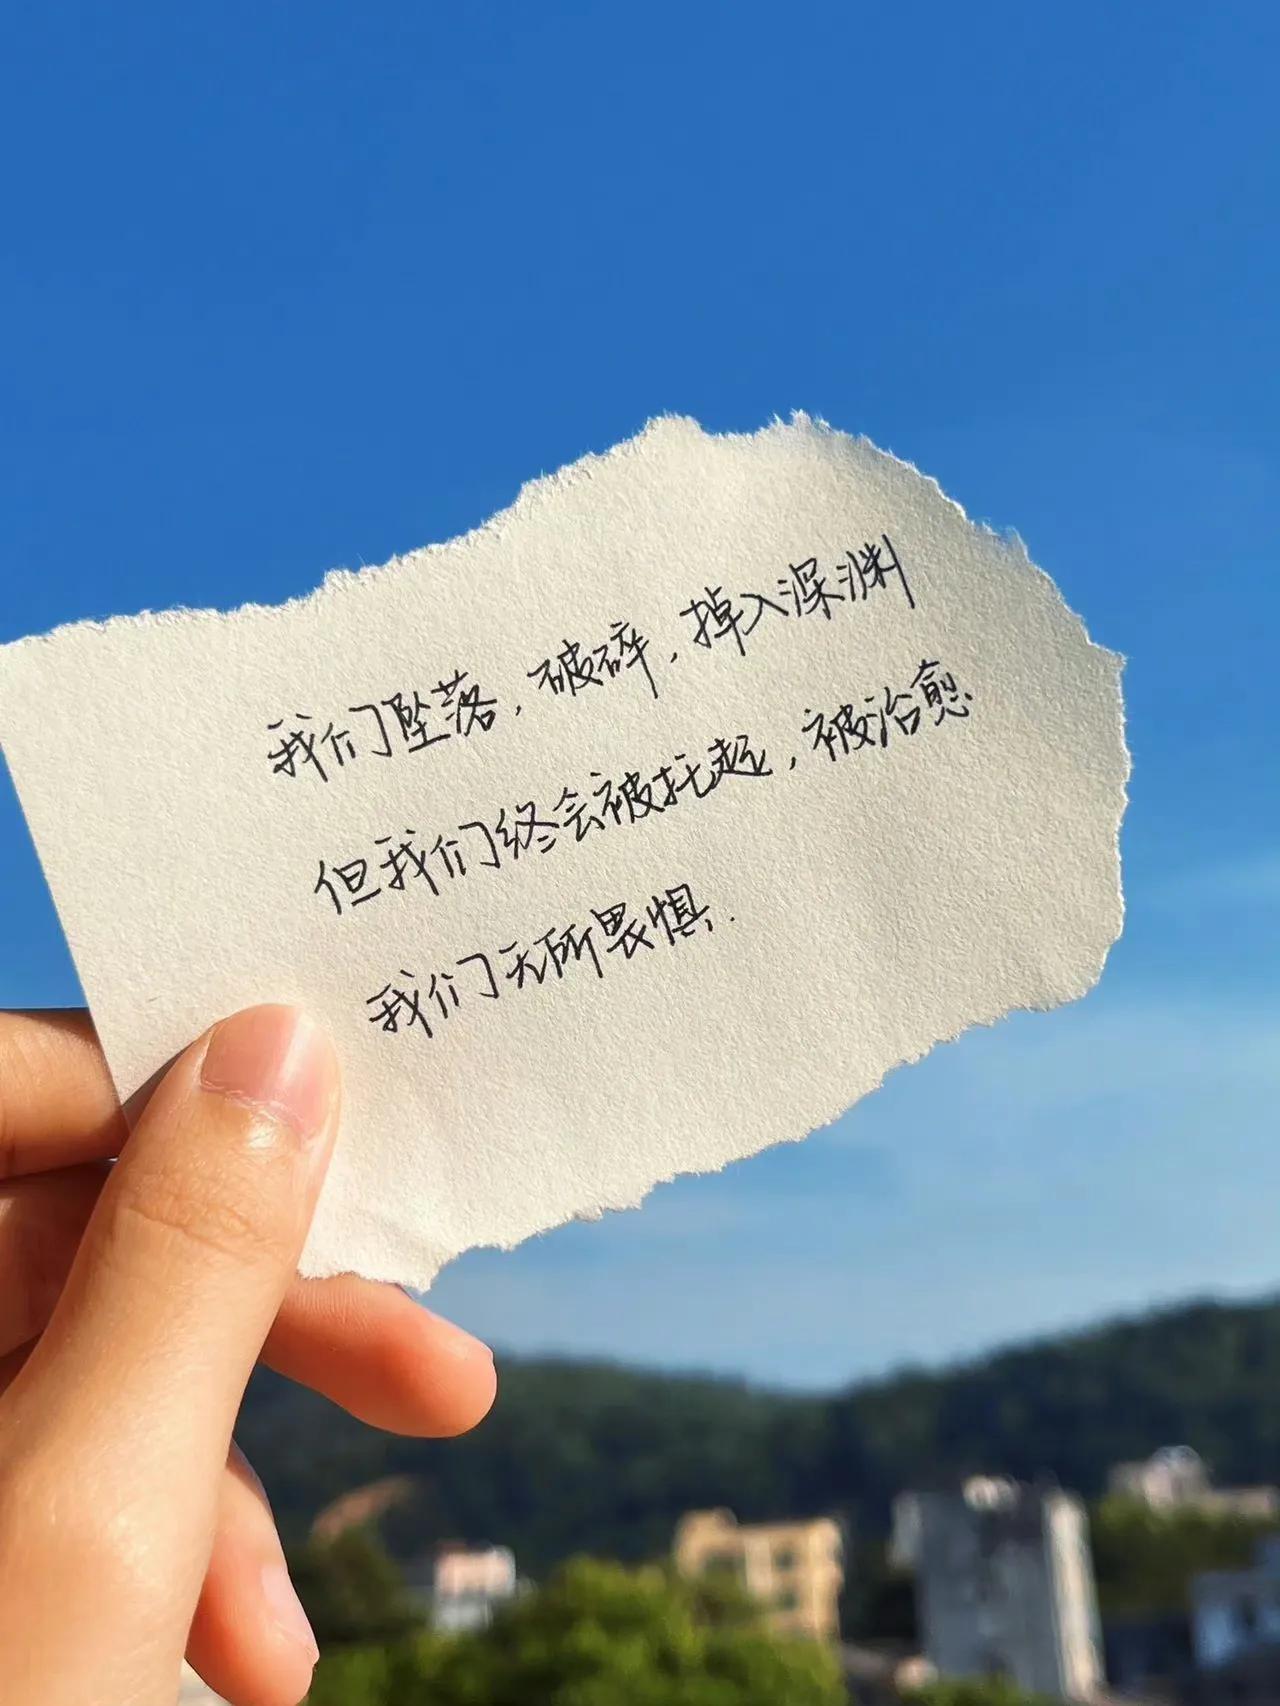 我们坠落,破碎,掉入深渊
但我们终会被托起,被治愈
我们无所畏惧.